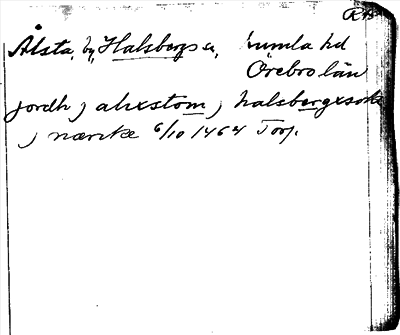 RA
Ålsta, by, Halsbergs sn, Kumla hd
Örebro län
jordh j alxstom j halsbergxsokn
j nærike 6/10 1464 Torp.